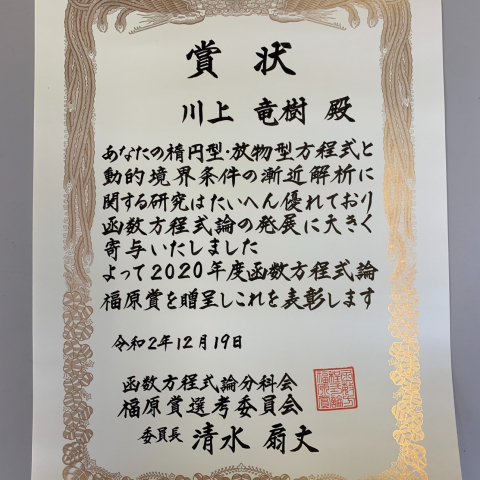 賞状
川上 竜樹 殿
あなたの楕円型・放物型方程式と
動的境界条件の漸近解析に
関する研究はたいへん優れており
函数方程式論の発展に大きく
寄与いたしました
よって2020年度函数方程式論
福原賞を贈呈しこれを表彰します
令和2年12月19日
函数方程式論分科会
福原賞選考委員会
委員長 清水 扇丈